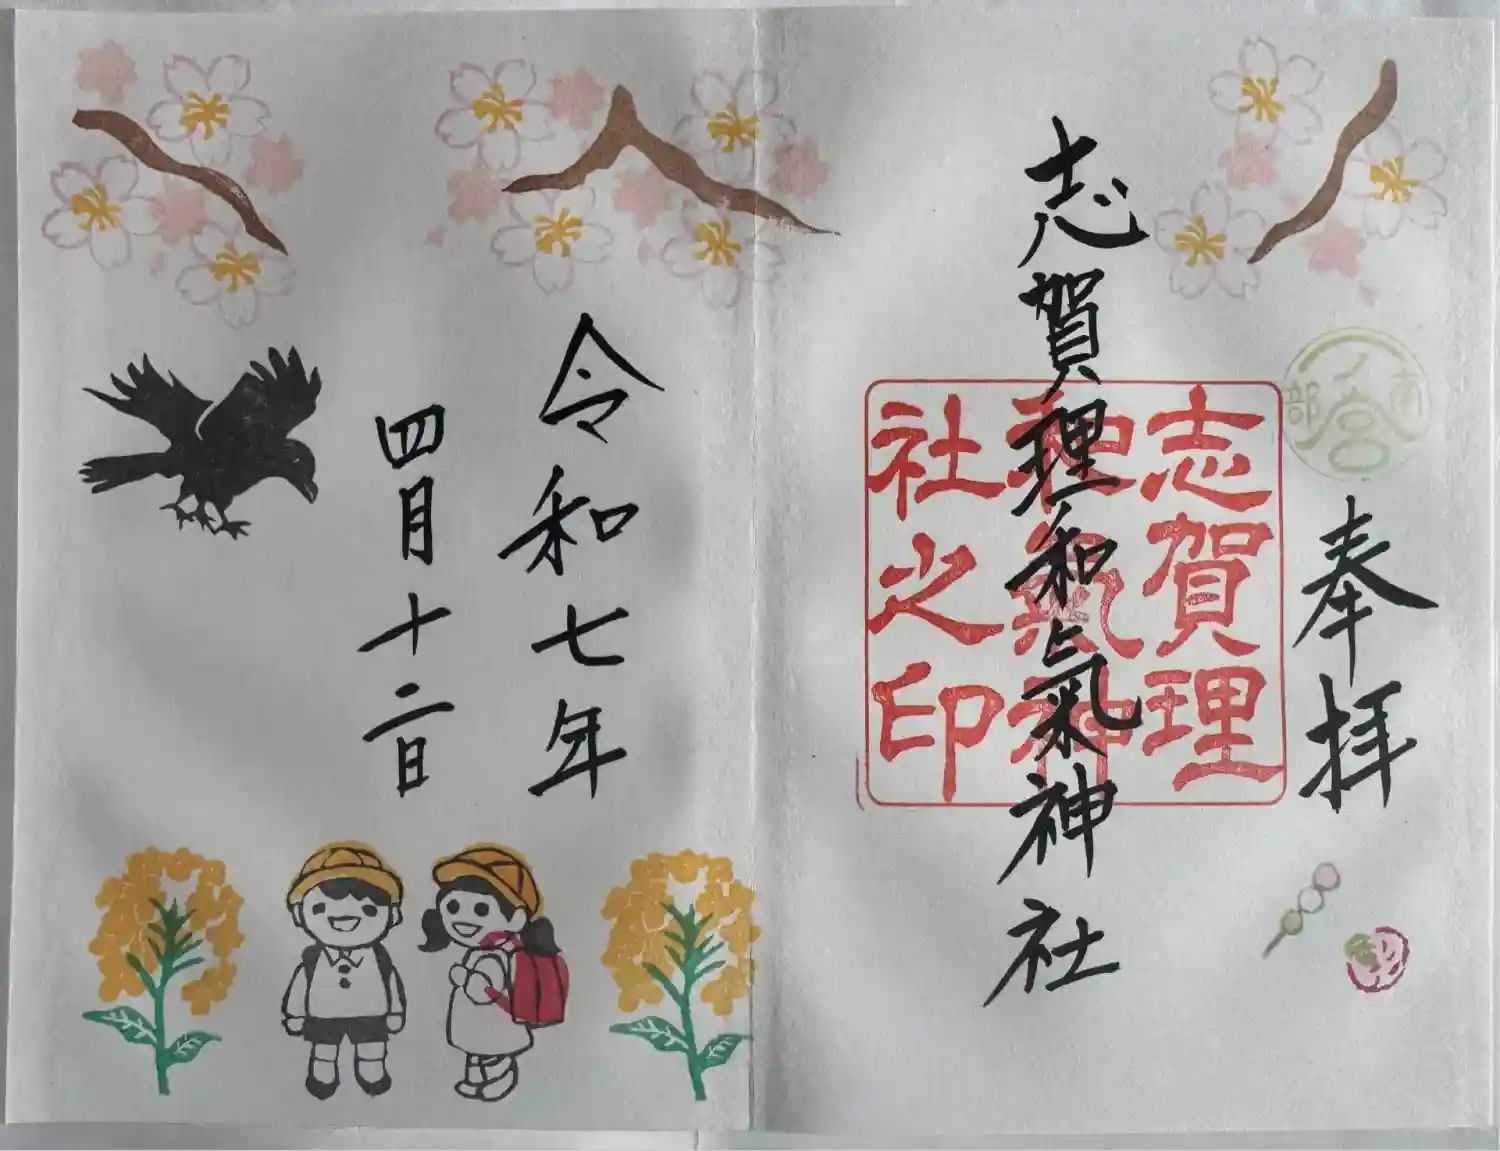 奉拝
南部一ノ宮
志賀理和氣神社
志賀理
和氣神
社之印
令和七年
四月十二日